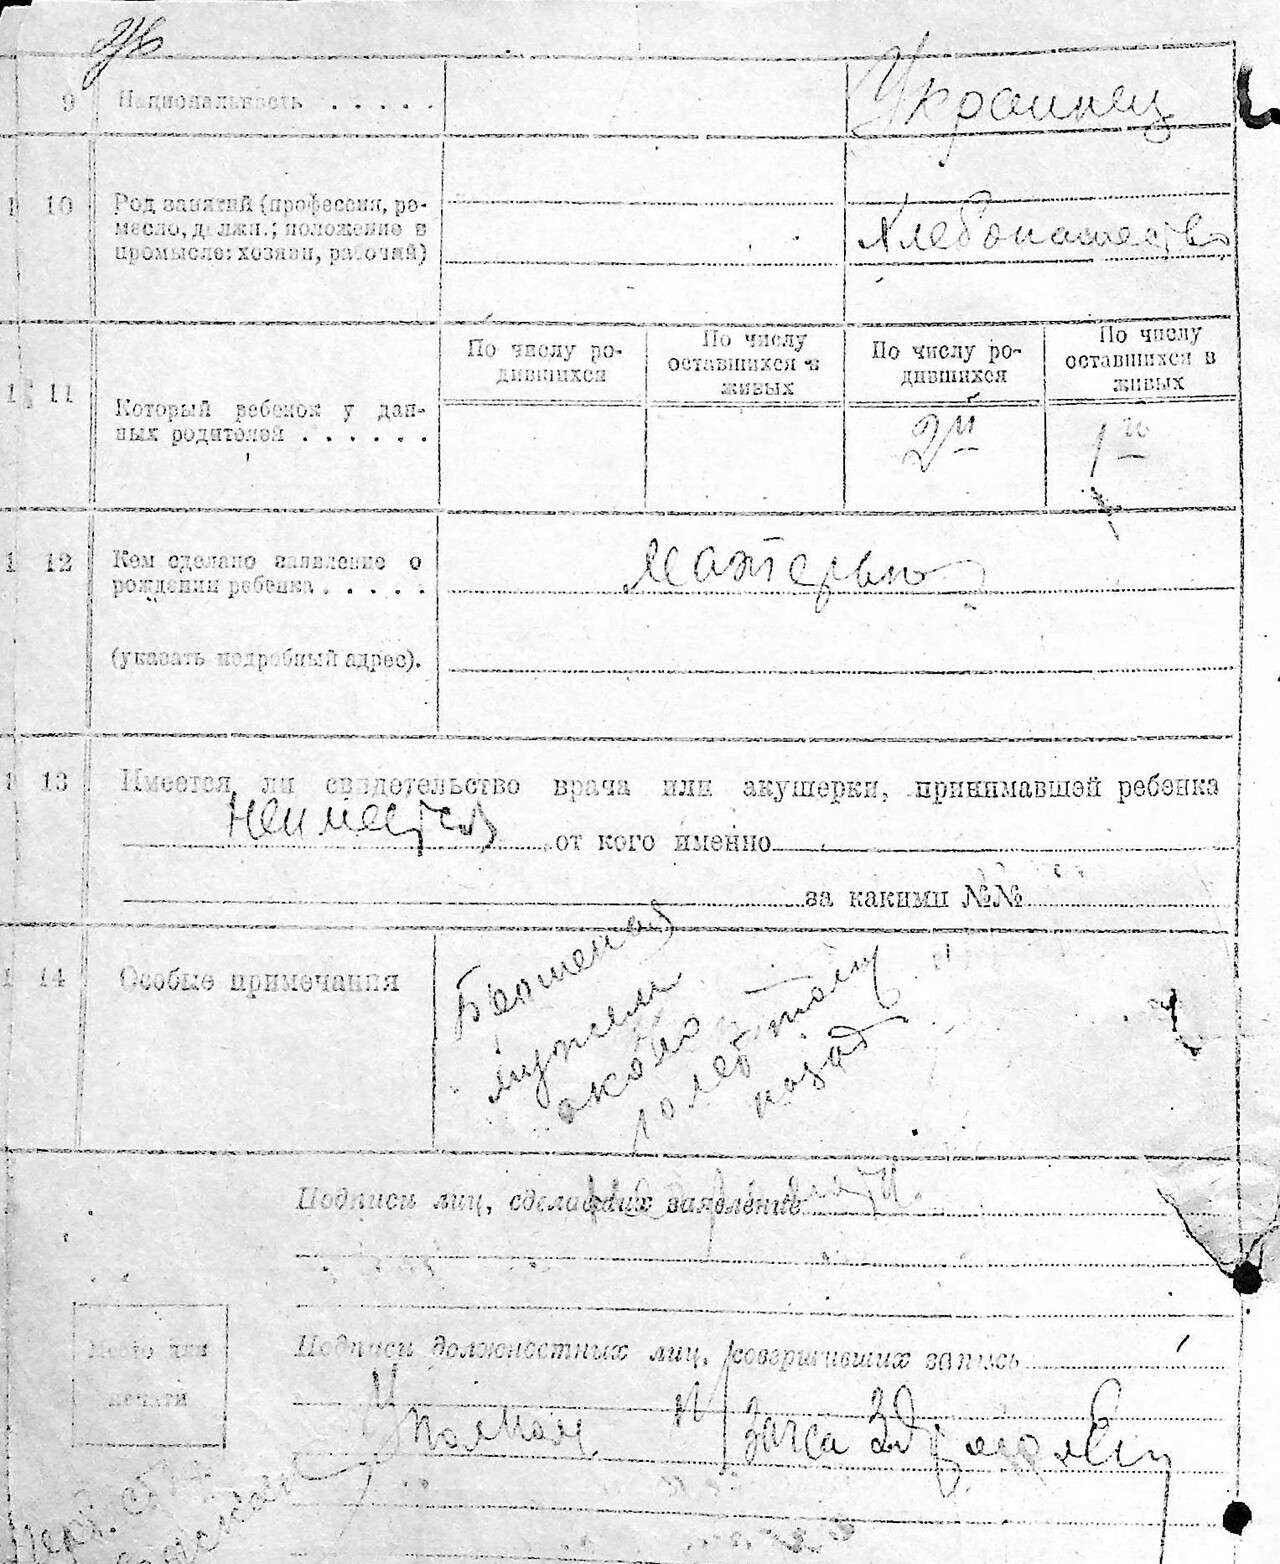 9 Национальность . . . . . Украинец
10 Род занятий (профессия, ре-
месло, должн.; положение в
промысле: хозяин, рабочий) Хлебопашество
По числу ро-
дившихся
По числу
оставшихся в
живых
По числу ро-
дившихся
По числу
оставшихся в
живых
11 Который ребенок у дан-
ных родителей . . . . . . 2й 1й
12 Кем сделано заявление о
рождении ребенка . . . . . Матерью
(указать подробный адрес).
13 Имеется ли свидетельство врача или акушерки, принимавшей ребенка
Неимеется от кого именно
за какими №№
14 Особые примечания
мужем
около
назад
Подписи лиц, сделавших заявление
Подписи должностных лиц, совершивших запись
Место для
печати
Загса